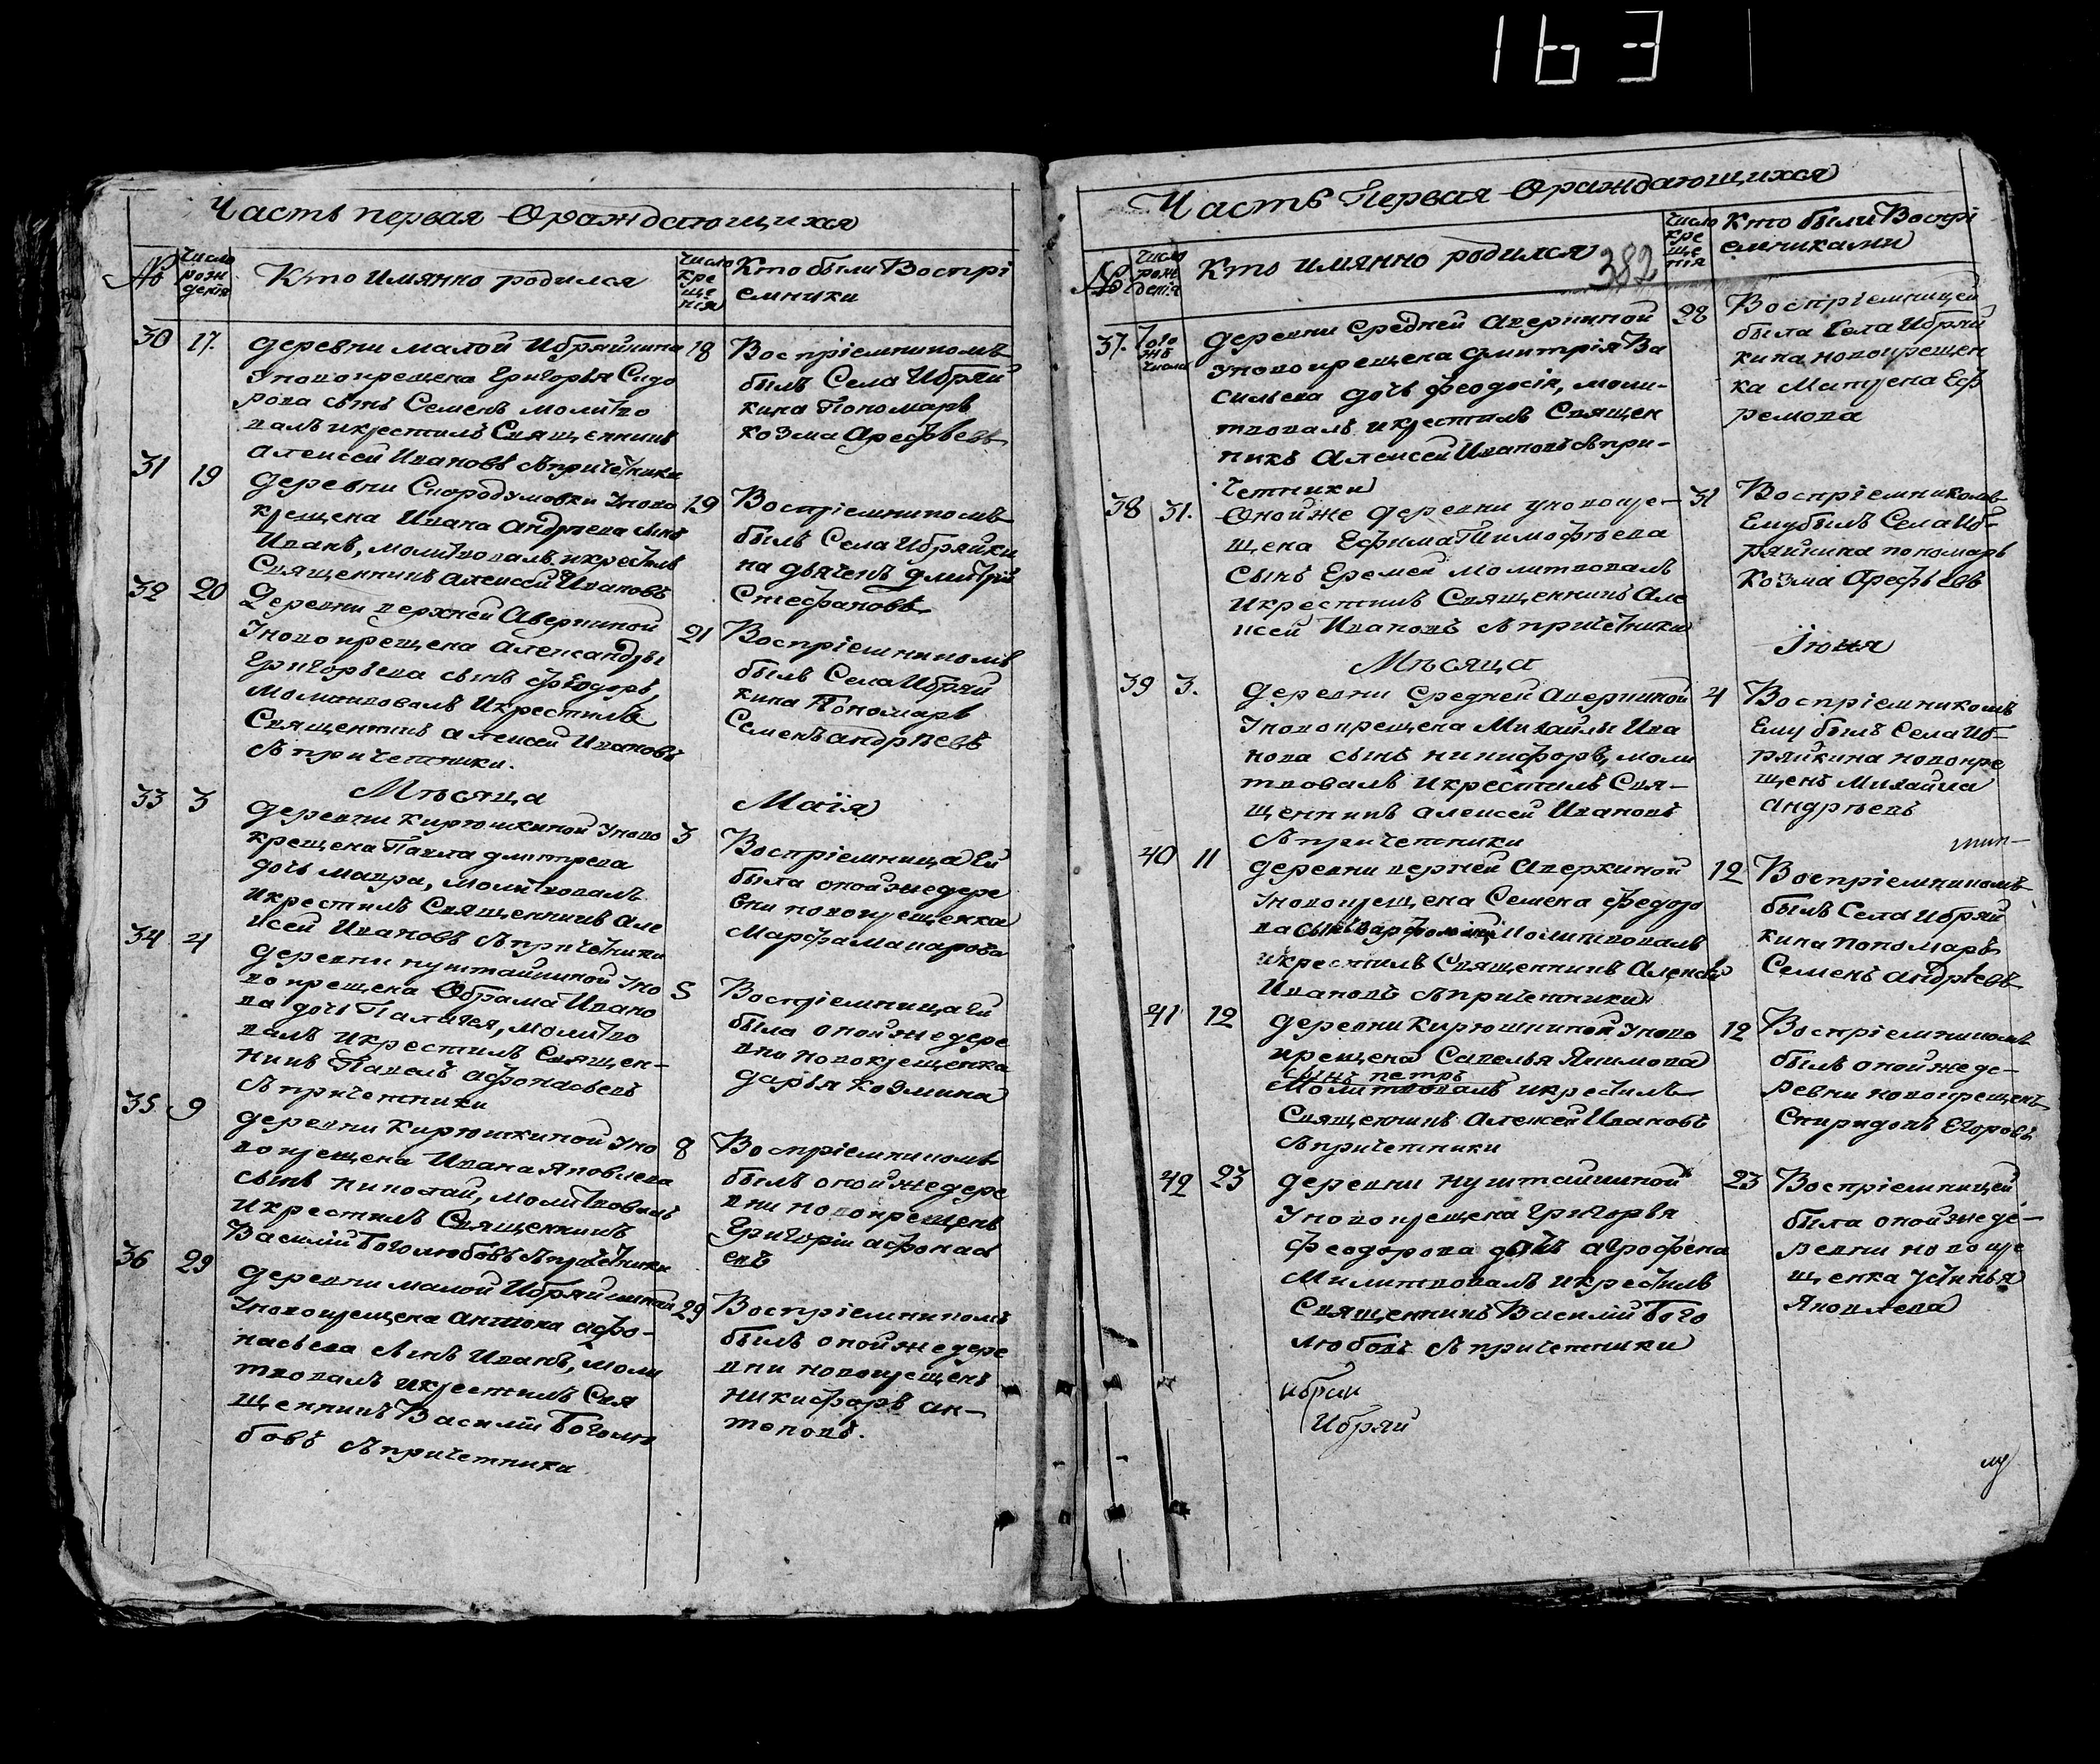 163
Часть первая Ораждающихся
№
Число рож дения
Кто Имянно родился
Число Кре ще нія
Кто были Воспрі
емники
30 17.
деревни малой Ибряйкина
Уновокрещена Григорья Сидо
рова сынъ Семенъ молитво
валъ икрестилъ Священникъ
Алексей Ивановъ спричетники
18
Воспріемникомъ
былъ Села Ибряй
кина Пономарь
козма Арефьевъ
31 19
деревни Скородумовки Уново
крещена Ивана Андреева сынъ
Иванъ, молитвовалъ икрестилъ
Священникъ Алексей Ивановъ
19
Воспріемникомъ
былъ Села Ибряйки
на дьячекъ дмитрій
Стефановъ
32 20
Деревни верхней Аверкиной
Уновокрещена Александры
Григорьева сынъ Феодоръ,
Молитвовалъ Икрестилъ
Священникъ Алексей Ивановъ
спричетники.
21
Воспріемникомъ
былъ Села Ибряй
кина Пономарь
Семенъ андреевъ
Месяца Маія
33 3
деревни Кирюшкиной Уново
крещена Павла дмитрева
дочь Мавра, Молитвовалъ
Икрестилъ Священникъ Але
ксей Ивановъ спричетники
3
Воспріемница ей
была онойжедере
вни новокрещенка
Марфа Макарова
34 4
деревни куштайкиной Уно
вокрещена Обрама Ивано
ва дочь Палагея, молитво
валъ икрестилъ Священ-
никъ Павелъ афонасьевъ
спричетники
5
Воспріемница ей
была онойжедере
вни новокрещенка
дарья Козмина
35 9
деревни Кирюшкиной Уно
вокрещена Ивана Яковлева
сынъ Николай, молитвовалъ
икрестилъ Священникъ
Василій Боголюбовъ спричетники
8
Воспріемникомъ
былъ онойжедере
вни новокрещенъ
Григорій афонась
евъ
36 29
деревни малой Ибряйкиной
Уновокрещена Антона афо-
насьева сынъ Иванъ, моли
твовалъ икрестилъ Свя
щенникъ Василій Боголю
бовъ спричетники
29
Воспріемникомъ
былъ онойжедере
вни новокрещенъ
никифаръ ан-
тоновъ.
Часть Первая Ораждающихся
№
Число рож денія
Кто имянно родился
382
Число кре ще нія
Кто были Воспрі
емниками
37. Того жъ числа
деревни Средней Аверкиной
Уновокрещена Дмитрія Ва
сильева дочь Феодосія, моли-
твовалъ икрестилъ Священ
никъ Алексей Ивановъ спри-
четники
22
Воспріемницей
была Села Ибряй
кина новокрещен
ка Матрена Еф
ремова
38 31.
Онойже деревни уновокре-
щена Ефима Тимофеева
сынъ Еремей молитвовалъ
икрестилъ Священникъ Але
ксей Ивановъ спричетники
31
Воспріемникомъ
Емубылъ Села Иб-
ряйкина пономарь
Козма Арефьевъ
Месяца Іюня
39 3.
деревни Средней Аверкиной
Уновокрещена Михайлы Ива
нова сынъ никифоръ, моли
твовалъ икрестилъ Свя-
щенникъ алексей Ивановъ
спричетники
4
Воспріемникомъ
Ему былъ Села Иб-
ряйкина новокре
щенъ Михайла
андреевъ
40 11
деревни верхней Аверкиной
Уновокрещена Семена Федоро
ва сынъ варфоломей Молитвовалъ
икрестилъ Священникъ Алексей
Ивановъ спричетники
12
Воспріемникомъ
былъ Села Ибряй
кина пономарь
Семенъ андреевъ
41 12
деревни Кирюшкиной Уново
крещена Савелья Якимова
сынъ петръ
Молитвовалъ икрестилъ
Священникъ Алексей Ивановъ
спричетники
12
Воспріемникомъ
былъ онойжеде-
ревни новокрещенъ
Спиридонъ Егоровъ
42 23
деревни куштайкиной
Уновокрещена Григорья
Феодорова дочь агрофена
Милитвовалъ икрестилъ
Священникъ Василій Бого
любовъ спричетники
23
Воспріемницей
была онойжеде-
ревни новокре
щенка устинья
Яковлева
ибрии
Ибряй